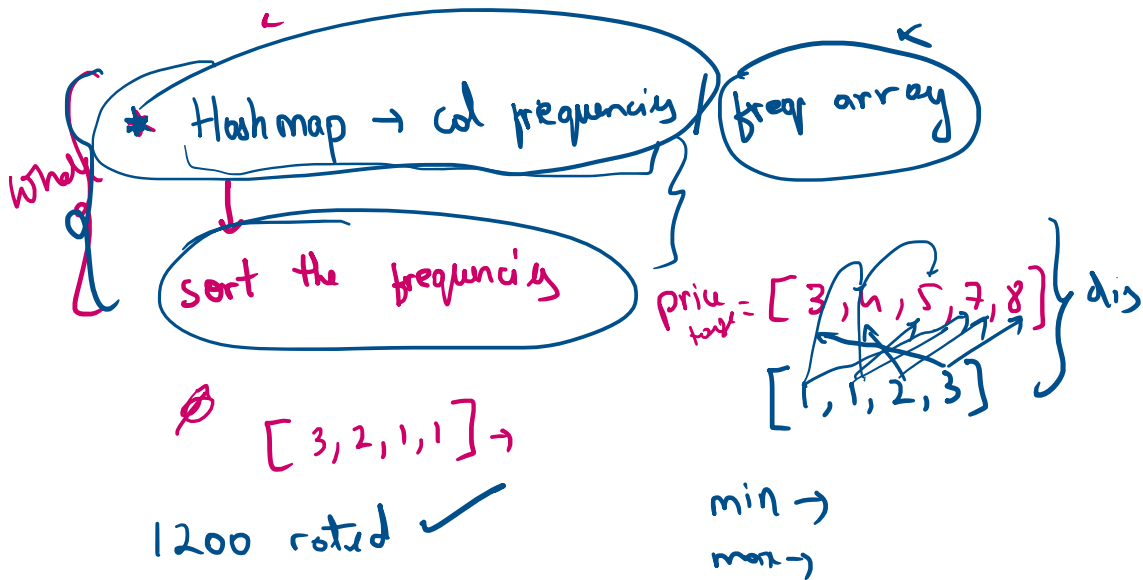 Hashmap → col frequencies / freq array
sort the frequencies
price = [3, 4, 5, 7, 8] } dis
[1, 1, 2, 3]
[3, 2, 1, 1] →
min →
1200 rated ✓
max →